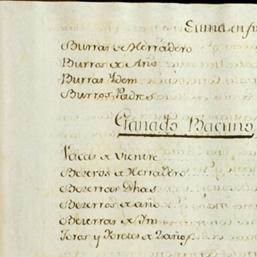 Suma en fr
Burras de Herradero
Burros de Año
Burras Ydem
Burros Padres
Ganado Bacuno
Vacas de Vientre
Beserros de Herradero
Beserras Ydias
Beserros de año
Beserras de Ydm
Toros y Toretes de 2 años